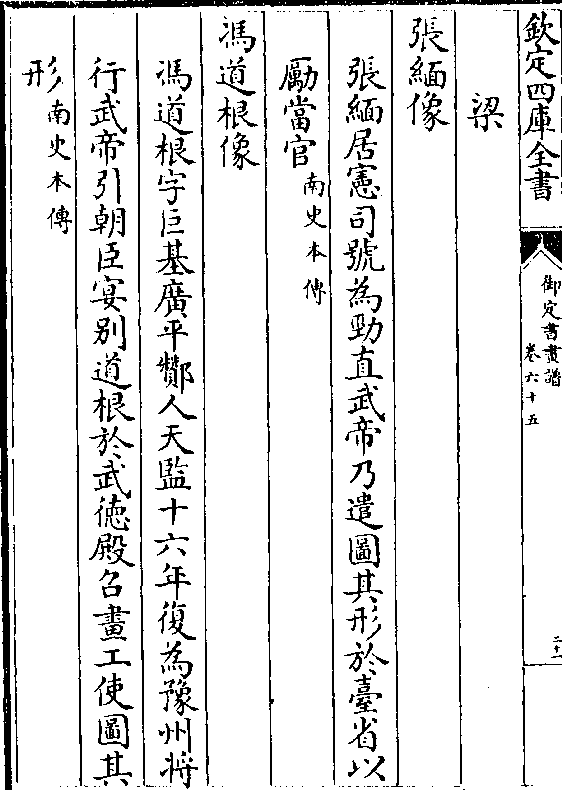 欽定四庫全書
御定書畫譜
卷六十五
二十一
梁
張緬像
張緬居憲司號為勁直武帝乃遣圖其形於臺省以
勵當官南史本傳
馮道根像
馮道根字巨基廣平酇人天監十六年復為豫州將
行武帝引朝臣宴别道根於武徳殿召畫工使圖其
形南史本傳